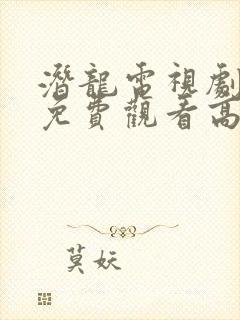 潛龍電視劇
免費觀看高
莫妖